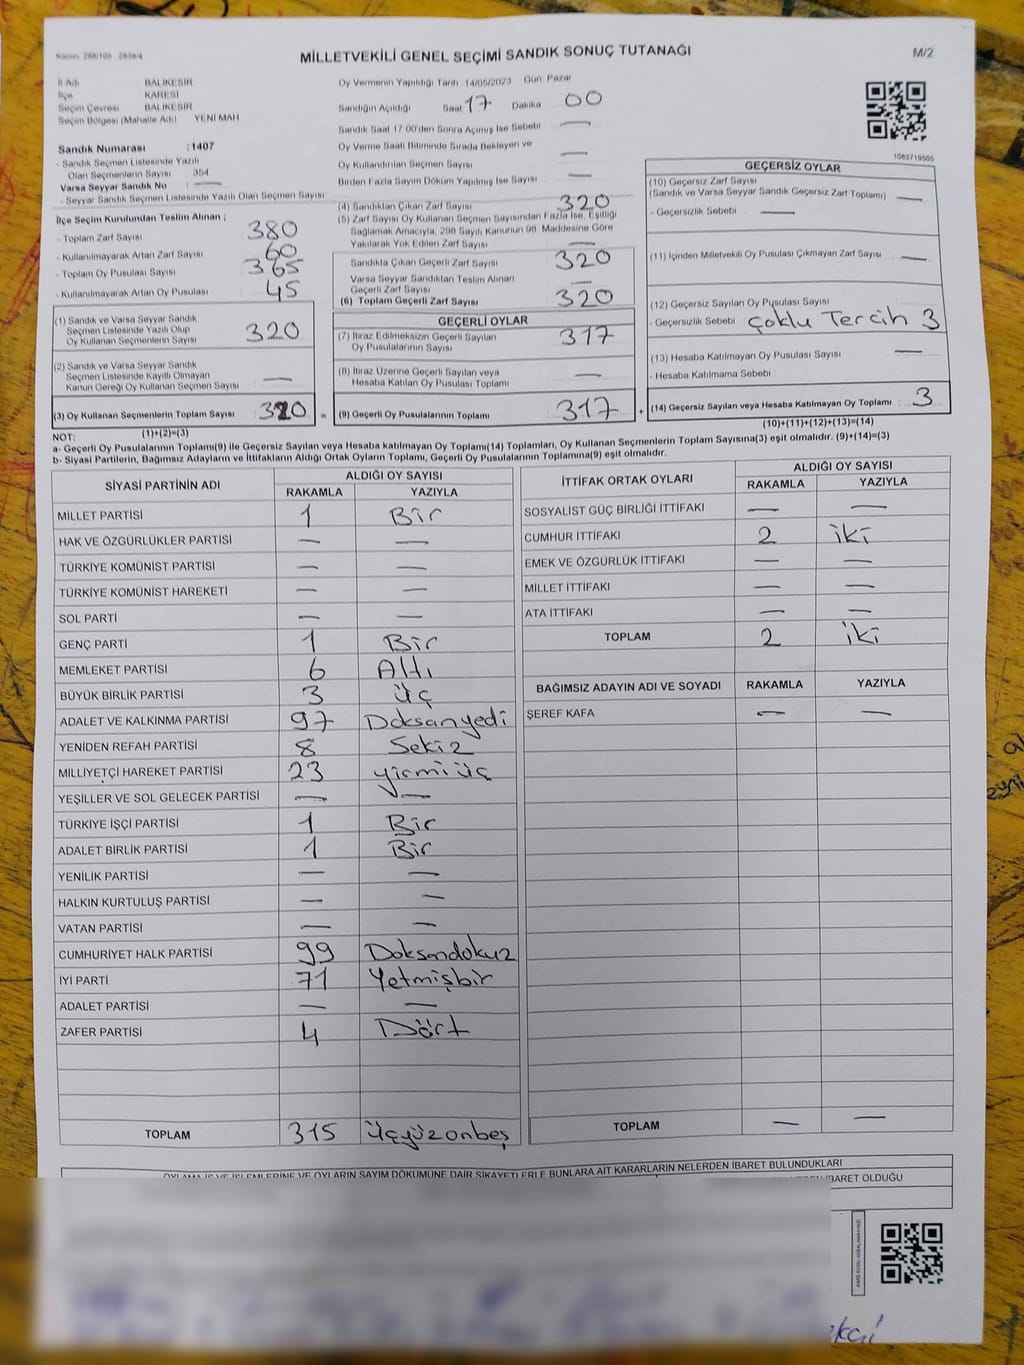 Kanun: 298/105 , 2839/4
MİLLETVEKİLİ GENEL SEÇİMİ SANDIK SONUÇ TUTANAĞI
M/2
İl Adı BALIKESİR
İlçe KARESİ
Seçim Çevresi BALIKESİR
Seçim Bölgesi (Mahalle Adı) YENİ MAH
Sandık Numarası : 1407
- Sandık Seçmen Listesinde Yazılı
Olan Seçmenlerin Sayısı 354
Varsa Seyyar Sandık No : —
- Seyyar Sandık Seçmen Listesinde Yazılı Olan Seçmen Sayısı
İlçe Seçim Kurulundan Teslim Alınan ;
- Toplam Zarf Sayısı 380
- Kullanılmayarak Artan Zarf Sayısı 60
- Toplam Oy Pusulası Sayısı 365
- Kullanılmayarak Artan Oy Pusulası 45
(1) Sandık ve Varsa Seyyar Sandık
Seçmen Listesinde Yazılı Olup
Oy Kullanan Seçmenlerin Sayısı 320
(2) Sandık ve Varsa Seyyar Sandık
Seçmen Listesinde Kayıtlı Olmayan
Kanun Gereği Oy Kullanan Seçmen Sayısı —
(3) Oy Kullanan Seçmenlerin Toplam Sayısı 320 =
(1)+(2)=(3)
Oy Vermenin Yapıldığı Tarih 14/05/2023 Gün Pazar
Sandığın Açıldığı Saat 17 Dakika 00
Sandık Saat 17:00'den Sonra Açılmış İse Sebebi —
Oy Verme Saati Bitiminde Sırada Bekleyen ve
Oy Kullandırılan Seçmen Sayısı —
Birden Fazla Sayım Döküm Yapılmış İse Sayısı —
(4) Sandıktan Çıkan Zarf Sayısı 320
(5) Zarf Sayısı Oy Kullanan Seçmen Sayısından Fazla İse, Eşitliği
Sağlamak Amacıyla, 298 Sayılı Kanunun 98. Maddesine Göre
Yakılarak Yok Edilen Zarf Sayısı —
Sandıkta Çıkan Geçerli Zarf Sayısı 320
Varsa Seyyar Sandıktan Teslim Alınan
Geçerli Zarf Sayısı
(6) Toplam Geçerli Zarf Sayısı 320
GEÇERLİ OYLAR
(7) İtiraz Edilmeksizin Geçerli Sayılan
Oy Pusulalarının Sayısı 317
(8) İtiraz Üzerine Geçerli Sayılan veya
Hesaba Katılan Oy Pusulası Toplamı —
(9) Geçerli Oy Pusulalarının Toplamı 317 +
1083719505
GEÇERSİZ OYLAR
(10) Geçersiz Zarf Sayısı
(Sandık ve Varsa Seyyar Sandık Geçersiz Zarf Toplamı) —
- Geçersizlik Sebebi : —
(11) İçinden Milletvekili Oy Pusulası Çıkmayan Zarf Sayısı —
(12) Geçersiz Sayılan Oy Pusulası Sayısı
- Geçersizlik Sebebi Çoklu Tercih 3
(13) Hesaba Katılmayan Oy Pusulası Sayısı —
- Hesaba Katılmama Sebebi
(14) Geçersiz Sayılan veya Hesaba Katılmayan Oy Toplamı : 3
(10)+(11)+(12)+(13)=(14)
NOT:
a- Geçerli Oy Pusulalarının Toplamı(9) ile Geçersiz Sayılan veya Hesaba katılmayan Oy Toplamı(14) Toplamları, Oy Kullanan Seçmenlerin Toplam Sayısına(3) eşit olmalıdır. (9)+(14)=(3)
b- Siyasi Partilerin, Bağımsız Adayların ve İttifakların Aldığı Ortak Oyların Toplamı, Geçerli Oy Pusulalarının Toplamına(9) eşit olmalıdır.
SİYASİ PARTİNİN ADI ALDIĞI OY SAYISI
RAKAMLA YAZIYLA
MİLLET PARTİSİ 1 Bir
HAK VE ÖZGÜRLÜKLER PARTİSİ — —
TÜRKİYE KOMÜNİST PARTİSİ — —
TÜRKİYE KOMÜNİST HAREKETİ — —
SOL PARTİ — —
GENÇ PARTİ 1 Bir
MEMLEKET PARTİSİ 6 Altı
BÜYÜK BİRLİK PARTİSİ 3 üç
ADALET VE KALKINMA PARTİSİ 97 Doksanyedi
YENİDEN REFAH PARTİSİ 8 Sekiz
MİLLİYETÇİ HAREKET PARTİSİ 23 yirmiüç
YEŞİLLER VE SOL GELECEK PARTİSİ — —
TÜRKİYE İŞÇİ PARTİSİ 1 Bir
ADALET BİRLİK PARTİSİ 1 Bir
YENİLİK PARTİSİ — —
HALKIN KURTULUŞ PARTİSİ — —
VATAN PARTİSİ — —
CUMHURİYET HALK PARTİSİ 99 Doksandokuz
İYİ PARTİ 71 Yetmişbir
ADALET PARTİSİ — —
ZAFER PARTİSİ 4 Dört
TOPLAM 315 üçyüzonbeş
İTTİFAK ORTAK OYLARI ALDIĞI OY SAYISI
RAKAMLA YAZIYLA
SOSYALİST GÜÇ BİRLİĞİ İTTİFAKI — —
CUMHUR İTTİFAKI 2 iki
EMEK VE ÖZGÜRLÜK İTTİFAKI — —
MİLLET İTTİFAKI — —
ATA İTTİFAKI — —
TOPLAM 2 iki
BAĞIMSIZ ADAYIN ADI VE SOYADI RAKAMLA YAZIYLA
ŞEREF KAFA — —
TOPLAM — —
OYLAMA İŞ VE İŞLEMLERİNE VE OYLARIN SAYIM DÖKÜMÜNE DAİR ŞİKAYETLERLE BUNLARA AİT KARARLARIN NELERDEN İBARET BULUNDUKLARI
İBARET OLDUĞU